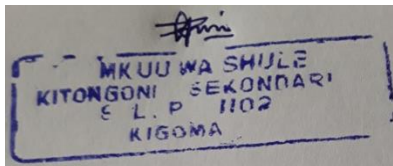 MKUU WA SHULE
KITONGONI SEKONDARI
S L. P 1102
KIGOMA